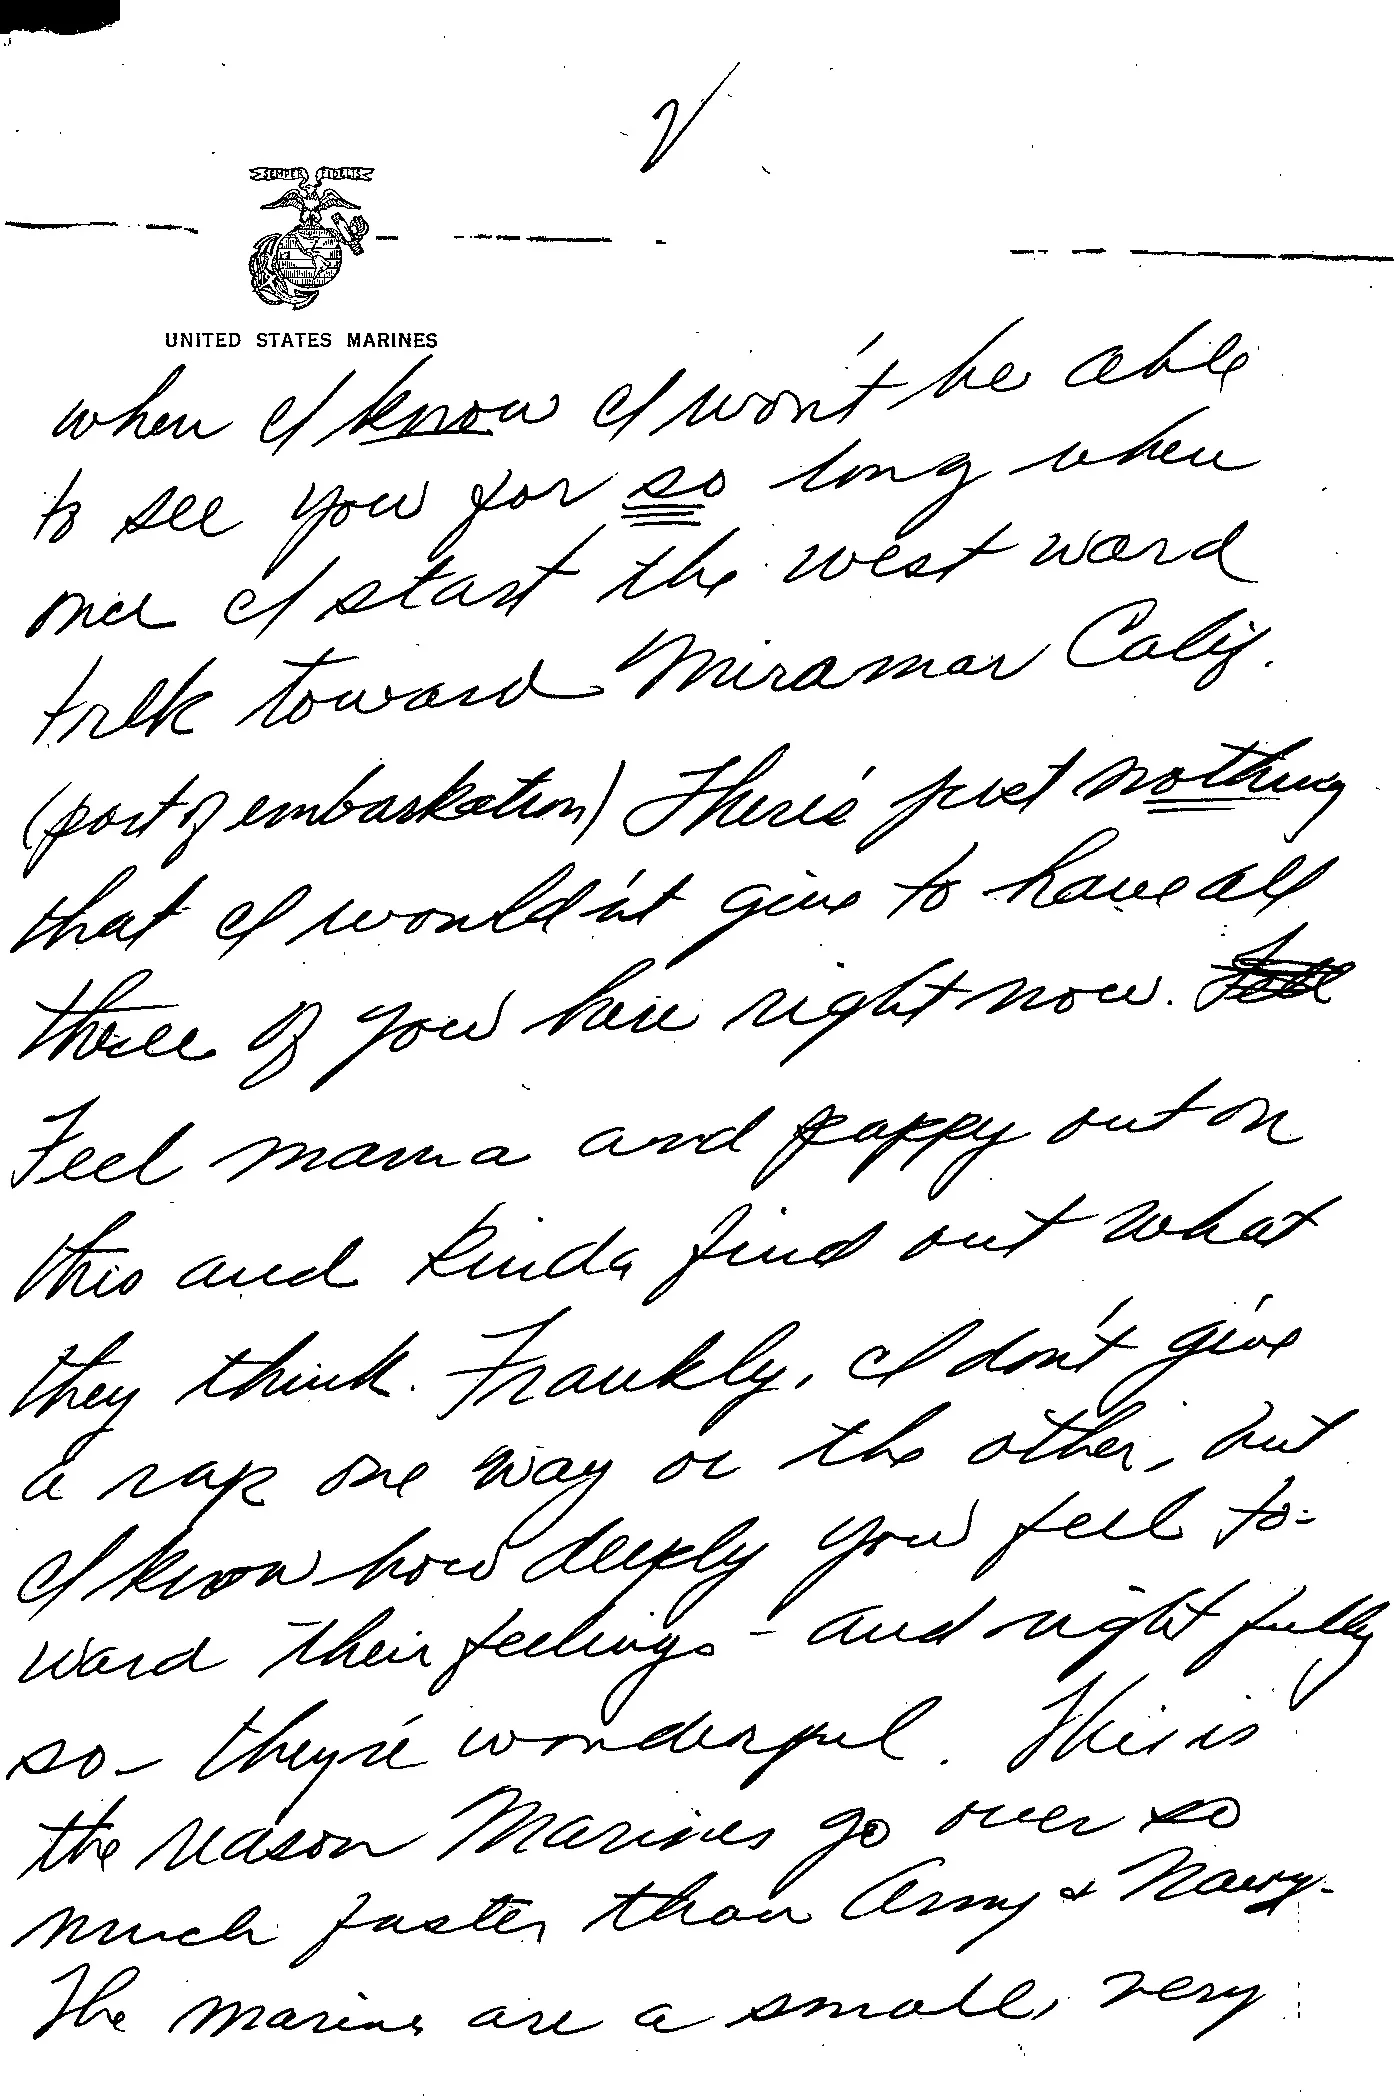 V
SEMPER FIDELIS
UNITED STATES MARINES
when I know I won't be able
to see you for so long when
once I start the west ward
trek toward Miramar Calif.
(port of embarkation) There's just nothing
that I would'nt give to have all
three of you here right now. Feel
Feel mama and pappy out on
this and kinda find out what
they think. Frankly, I don't give
a rap one way or the other, but
I know how deeply you feel to-
ward their feelings - and right fully
so - they're wonderful. This is
the reason Marines go over so
much faster than Army & Navy.
The marines are a small, very